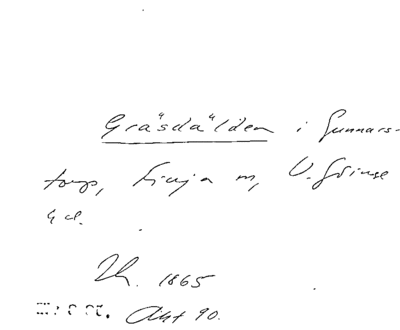 Gräsdälden i Gunnars-
torp, Finja m, V. Göinge
hd.
Lh. 1865
Akt 90.